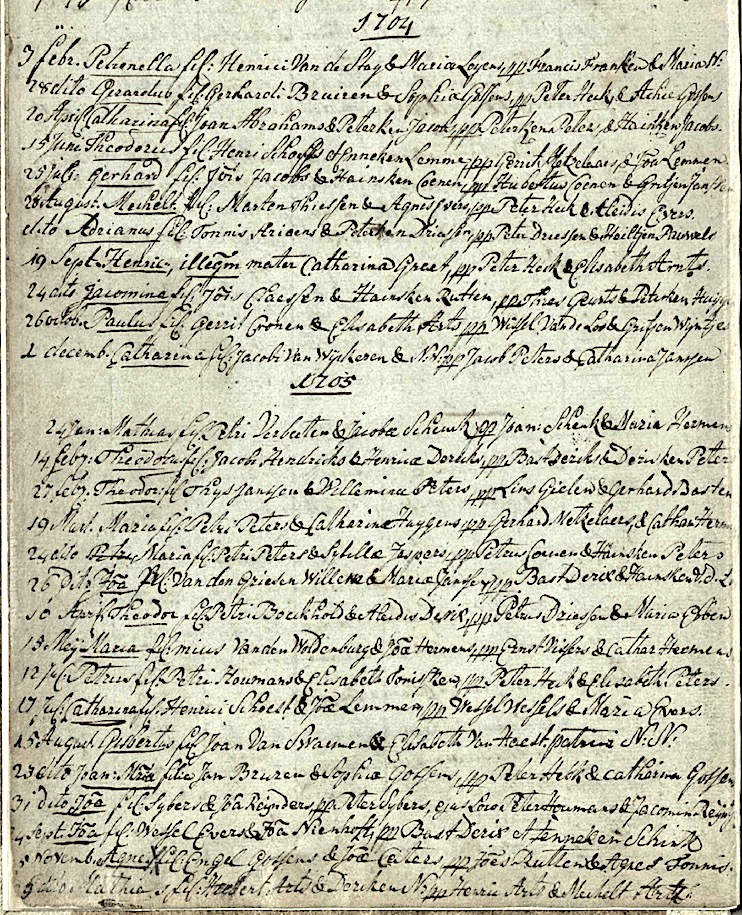 1704
3 febr. Petronella fil: Henrici Van de Stay & Maria Loyens, pp Francis Franken & Maria N:
28 dito Gerardus fil: Gerhardi Bruiren & Sophia Gossens, pp Peter Heck & Gossens
20 April Catharina fil Joan Abrahams & Peterken Jacobs, pp Peterken Peters, & Hainsken Jacobs.
15 Juni Theodorus fil: Henri Schoess et Enneken Lemme, pp Gerrit Metzelaers, & Joa Lemmen
25 juli: Gerhard fil: Jois Jacobs & Hainsken Coenen, pp Hubertus Coenen & Gritjen Janssen
28 August. Mechelt fil: Marten Thiessen & Agnis Evers, pp Peter Heck & Aleidis Evers.
dito Adrianus fil: Tonnis Ariaens & Peterken Driessen, pp Peter Driessen & Heiltjen Pauwels
19 Sept. Henric, illegm mater Catharina Greef, pp Peter Heck & Elisabeth Arnts.
24 dito Jacomina fil: Jois Claessen & Hainsken Rutten, pp Thies Geurts & Peterken
26 octob. Paulus fil: Gerrit Cronen & Elisabeth Arts pp Wessel Van de Loo & Gritjen Wyntjes
1 decemb. Catharina fil: Jacobi Van Wyckeren & N.N. pp Jacob Peters & Catharina Janssen
1705
24 Jan: Mathias fil Petri Verbeeten & Jacobæ Schenck, pp Joan: Schenk & Maria Hermens
14 feby: Theodorus fil: Jacob Hendricks & Henrica Dericks, pp Bast Dericks & Dericken Peter
27 feby. Theodor fil Thys Janssen & Willemina Peters, pp Lins Gielen & Gerhard Basten
19 Mart. Maria fil: Petri Peters & Catharina Huygens, pp Gerhard Metzelaers, & Cathar Herm
24 dito Maria fil: Petri Peters & Sibillæ Jaspers, pp Petrus Coenen & Hainsken Peters
26 Dito Joa fil: Van den Griesen Willem & Maria Janssen, pp Bast Derix & Hainsken V.d.
10 Theodor fil: Petri Boeckhold & Aleidis Derix, pp Petrus Driessen & Maria Ebben
15 Meij Maria fil: Van den Woldenburg & Joa Hermens, pp Ernst Vissers & Cathar Hermens
12 Jul: Petrus fil: Petri Houmans & Elisabets Tonissen, pp Peter Heck & Elisabets Peters.
17 Jul: Catharina fil: Henrici Schoest & Joa Lemmen, pp Wessel Wessels & Maria Evers.
15 August Gisbertus fil Joan Van Swaemen & Elisabeth Van Haest. patrini N:N:
23 dito Joan: Mria filia Jan Bruren & Sophia Gossens, pp Peter Heck & catharina Gossen
31 dito Joa fil: Sybers & Joa Reynders, pp Peter Sybers, ejus Loco Peter Houmans & Jacomin
Sept: Joa fil: Wessel Evers & Joa Nienhoff, pp Bast Derix et Henneken Schirx
5 Novemb. Agnes fil Engel Gossens & Joæ Caters, pp Joes Rutten & Agnes Tonnis.
dito Mathia s fil: Herbert Arts & Dercken N: pp Henric Arts & Mechelt Arts.